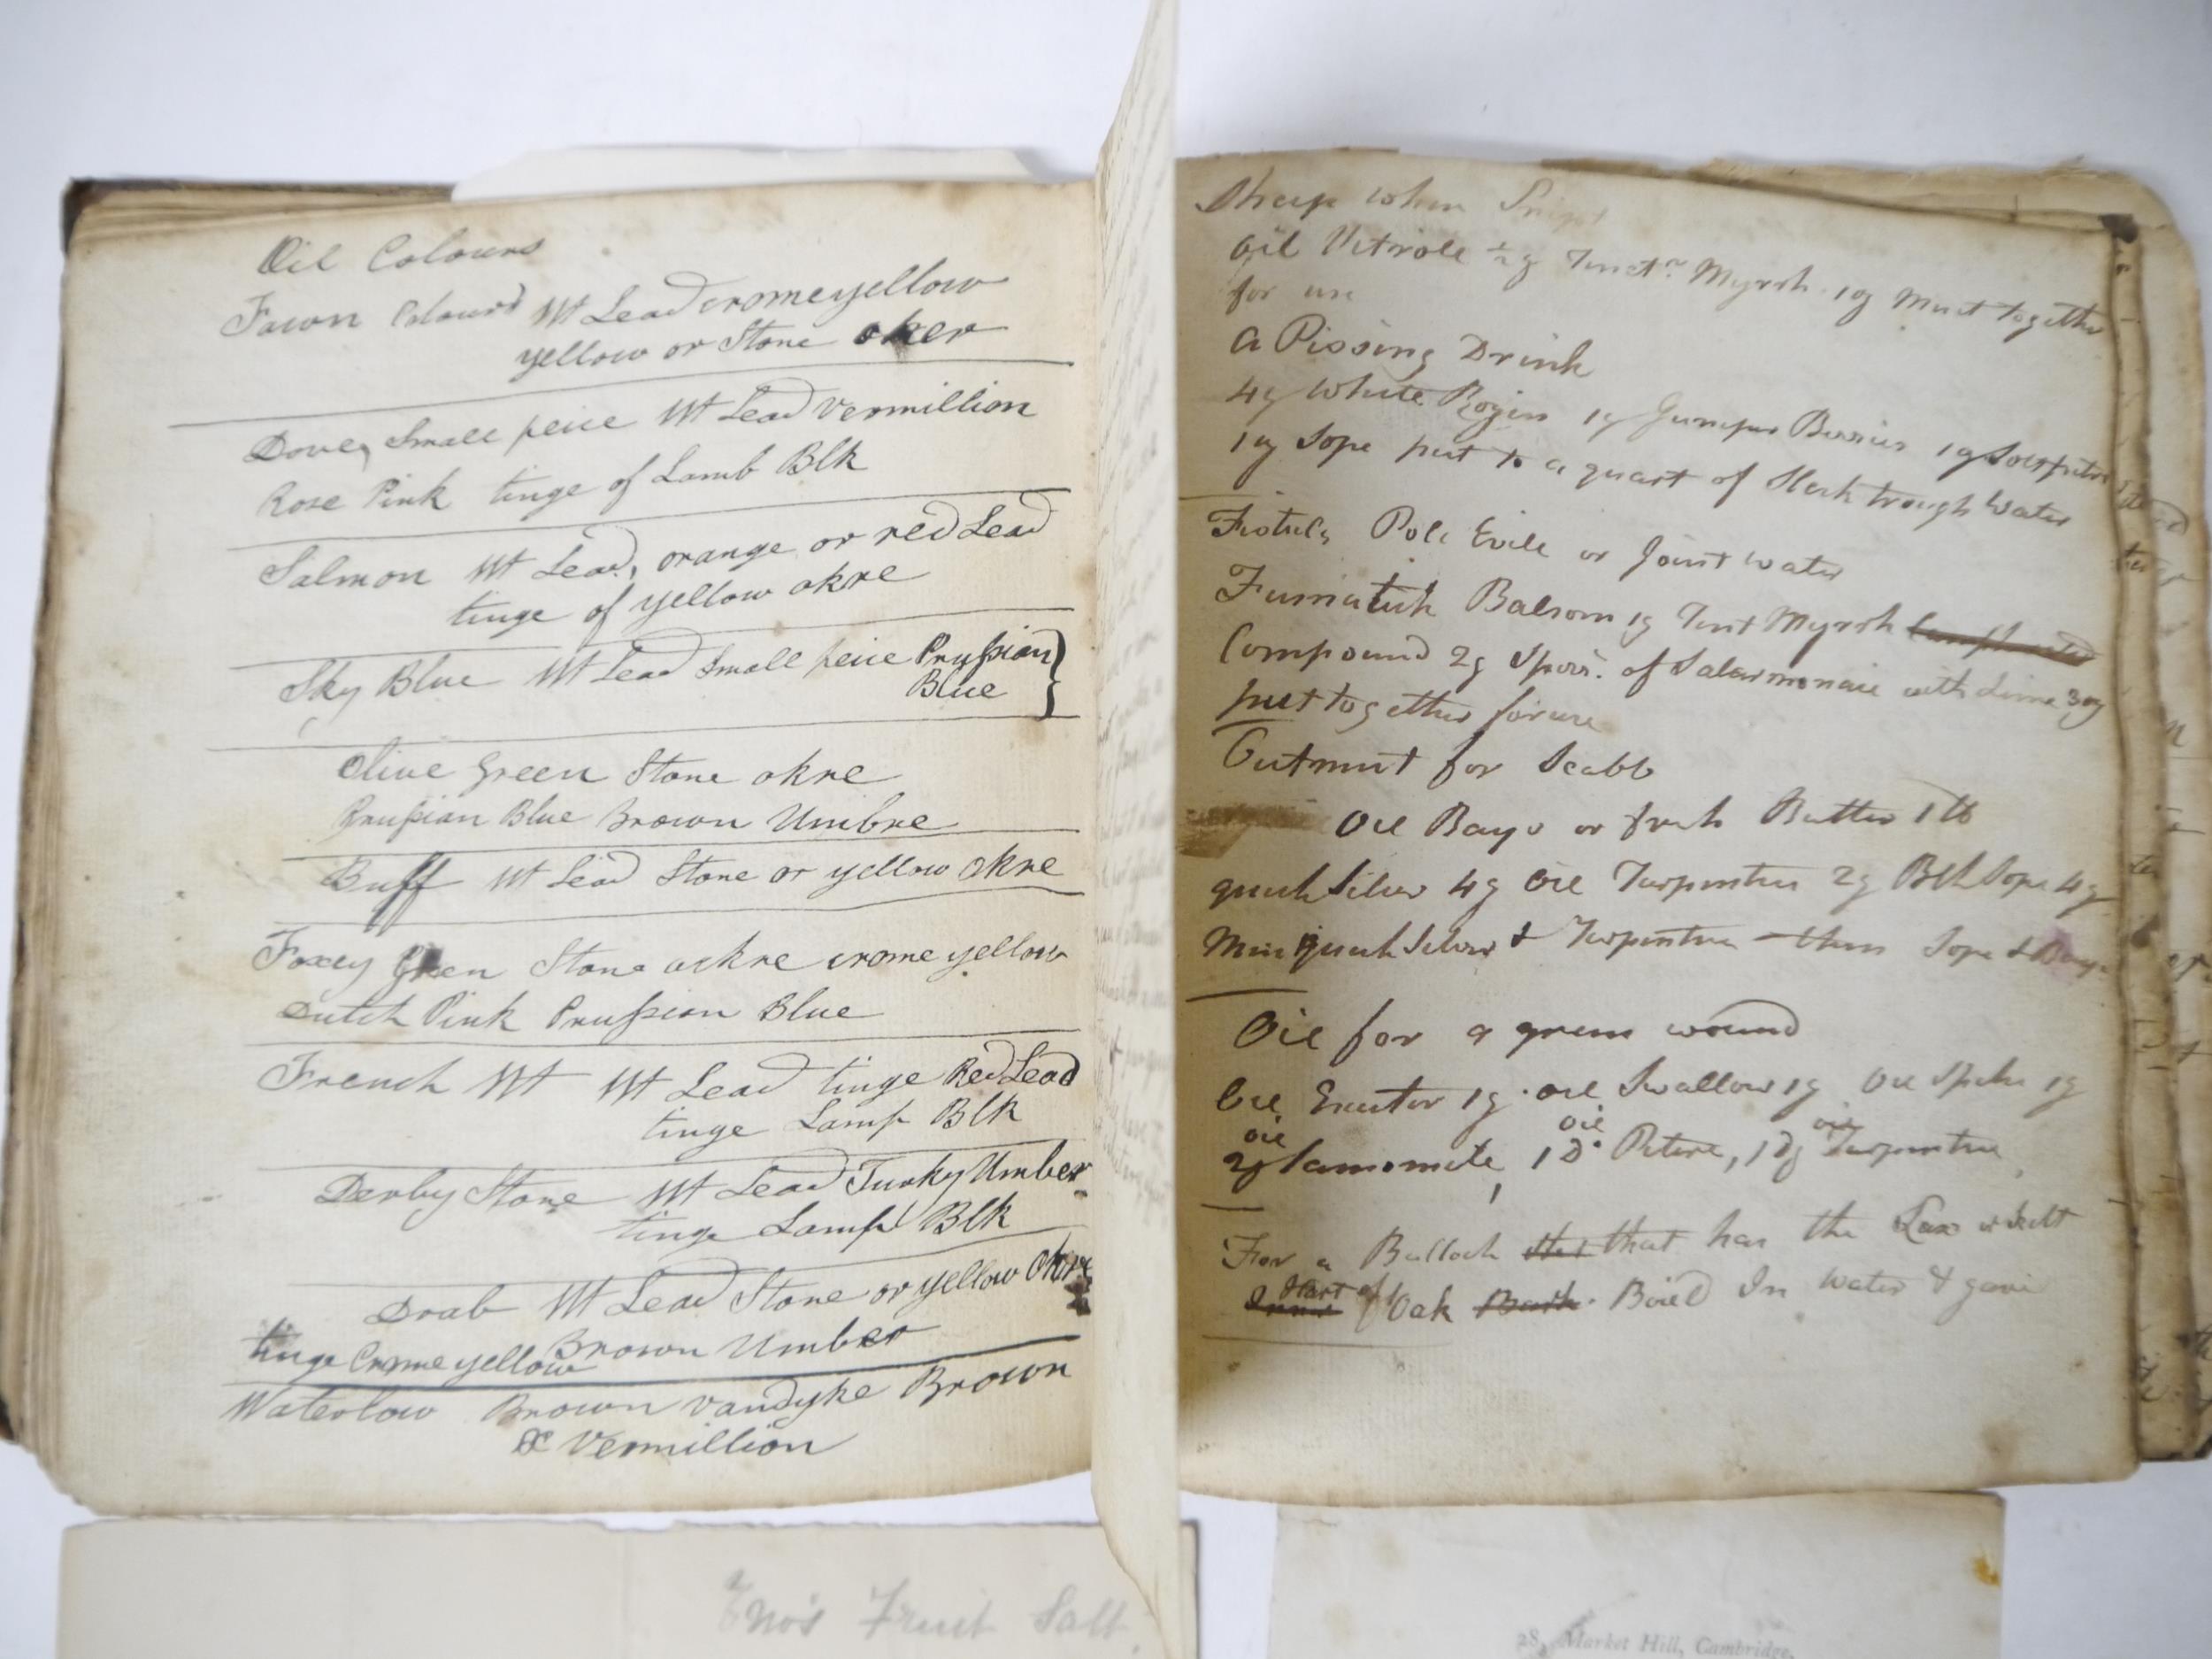 Oil Colours
Fawn Colour'd Wt Lead crome yellow
yellow or Stone oker
Dove, Small peice Wt Lead Vermillion
Rose Pink tinge of Lamb Blk
Salmon Wt Lead, orange or red Lead
tinge of yellow okre
Sky Blue Wt Lead Small peice Prussian
Blue
Olive Green Stone okre
Prussian Blue Brown Umbre
Buff Wt Lead Stone or yellow okre
Foxey Green Stone ockre crome yellow
Dutch Pink Prussian Blue
French Wt Wt Lead tinge Red Lead
tinge Lamp Blk
Derby Stone Wt Lead Turky Umber
tinge Lamp Blk
Drab Wt Lead Stone or yellow Okre
Brown Umber
tinge Crome yellow
Waterlow Brown Vandyke Brown
& Vermillion
Eno's Fruit Salt.
Sheep when
Oil Vitriole ½ Tinctr Myrrh 1 together
for use
A Pissing Drink
4 White Rogin 1 Juniper Berries 1
1 Sope put to a quart of Slack trough Water
Fistula Pole Evile or Joint water
Balsom 1 Tint Myrrh
Compound 2 of with Lime 3
put together for use
for Scabb
Oil Bays or fresh Butter 1 lb
quick Silver 4 Oil Turpentine 2 Blk Sope 4
quick Silver & Turpentine then Sope &
Oil for a green wound
Oil 1 Oil Swallow 1 Oil Spike 1
oil oil oil
2 Camomile, 1 Petere, 1 Turpentine
For a Bullock that has the Lax
Start of Oak Bark Boiled In Water & gave
28, Market Hill, Cambridge.